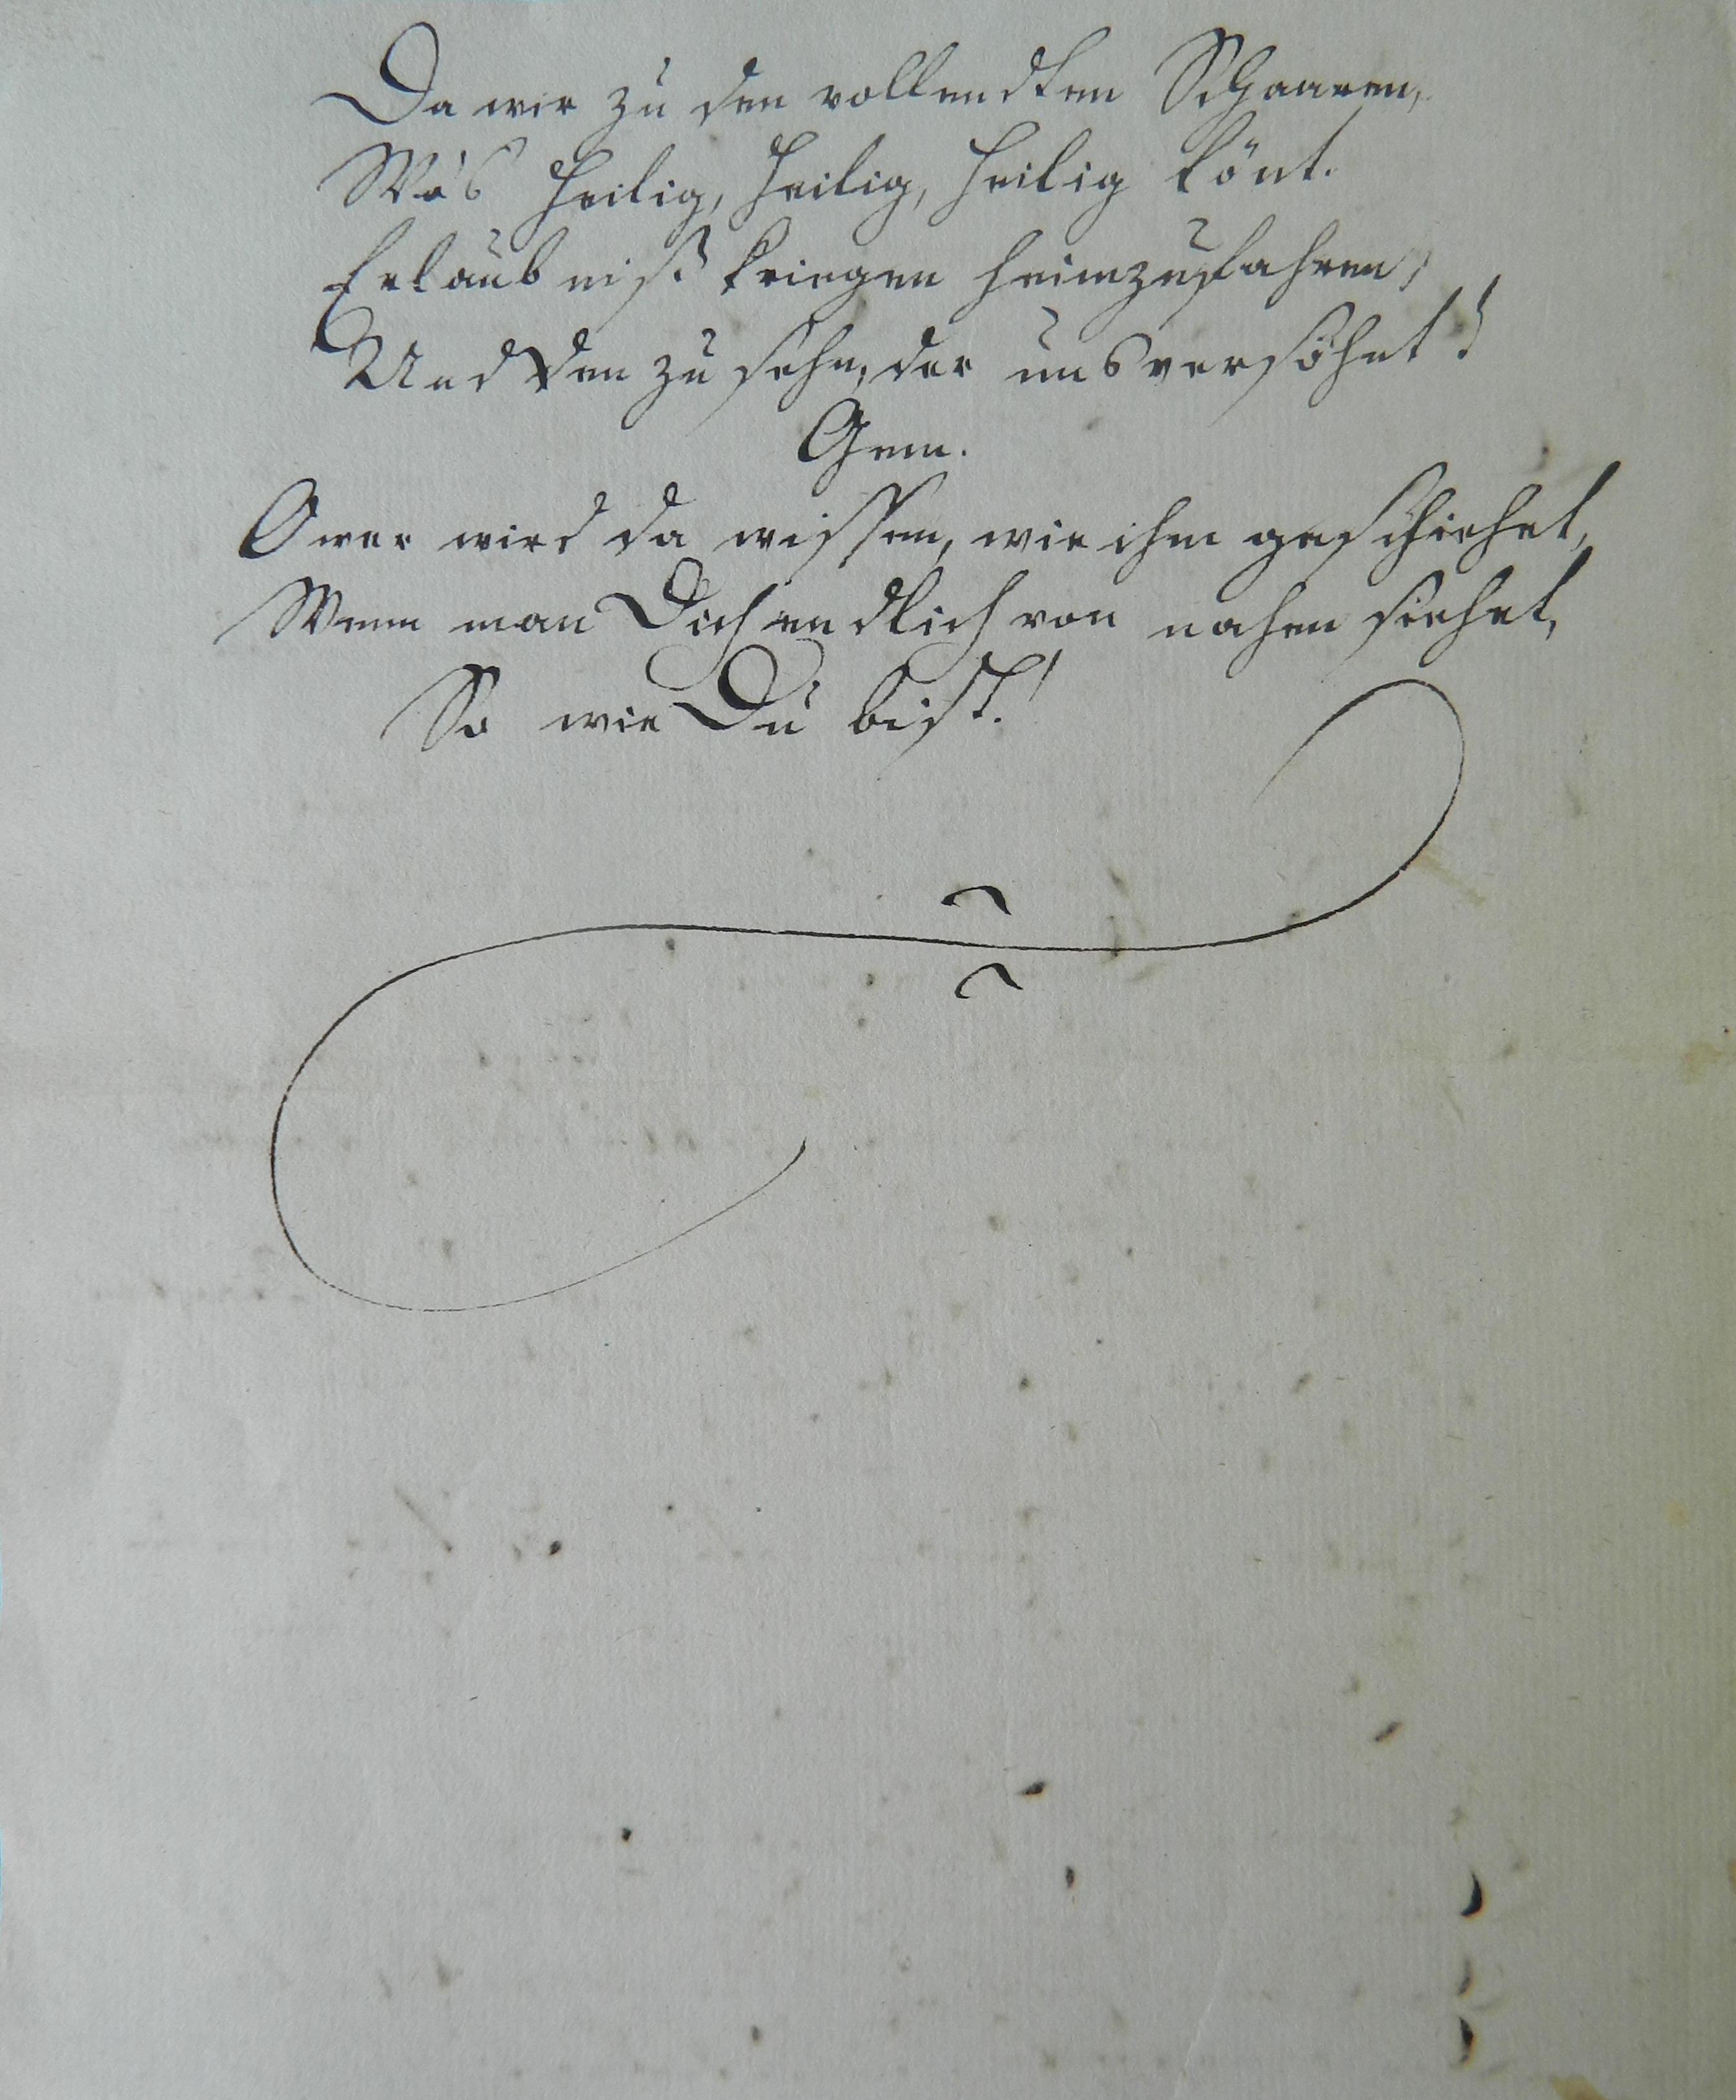 Da wir zu den vollendten Schaaren,
Wo's heilig, heilig, heilig tönt.
Erlaubniß kriegen heimzufahren,
Und den zu sehn, der uns versöhnt!
Gem.
O wer wird da wissen, wie ihm geschiehet,
Wenn man Dich endlich von nahen siehet,
So wie Du bist!